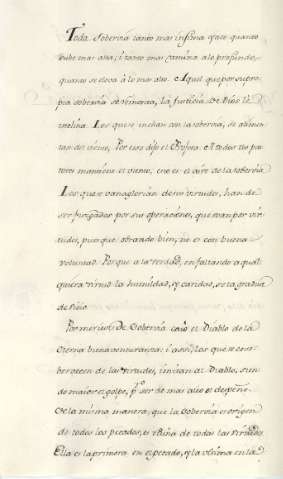 Toda Soberbia tanto mas infima yace quanto
sube mas alta; i tanto mas camina a lo profundo,
quanto se eleva à lo mas alto. Aquel que por su pro-
pia soberbia se ... la Justicia de Dios le
inclina. Los que se inchan con la soberbia, se alimen-
tan del viento. Por eso dijo el Profeta: A todos sus pas-
tores mantiene el viento, esto es el aire de la soberbia
Los que se vanaglorian de sus virtudes, han de
ser juzgados por sus operaciones, que usan por vir-
tudes, porque obrando bien, no es con buena
voluntad. Porque a la verdad, en faltando a qual-
quiera virtud la humildad, y caridad, se la gradua
de vicio.
Por merito de Soberbia caio el Diablo de la
eterna buenaventuranza; i assi, los que se ensor-
berbecen de las virtudes, imitan al Diablo, sien-
do maior el golpe, pr ser de mas alto el despeño
De la misma manera, que la Soberbia es origen
de todos los pecados, es Ruina de todas las Virtudes
Ella es la primera en el pecado, y la ultima en la